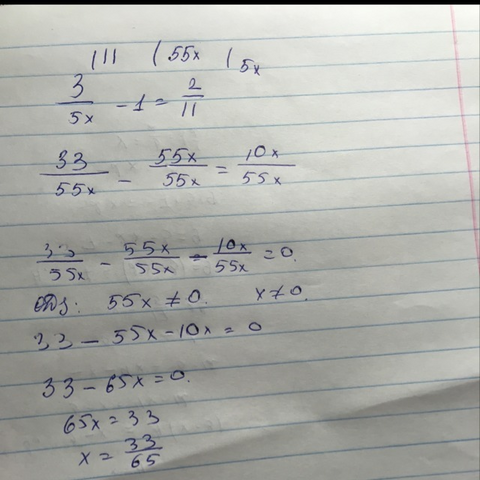 \111 \55x \5x
3/5x - 1 = 2/11
33/55x - 55x/55x = 10x/55x
33/55x - 55x/55x - 10x/55x = 0.
ОДЗ: 55x ≠ 0. x ≠ 0.
33 - 55x - 10x = 0
33 - 65x = 0.
65x = 33
x = 33/65